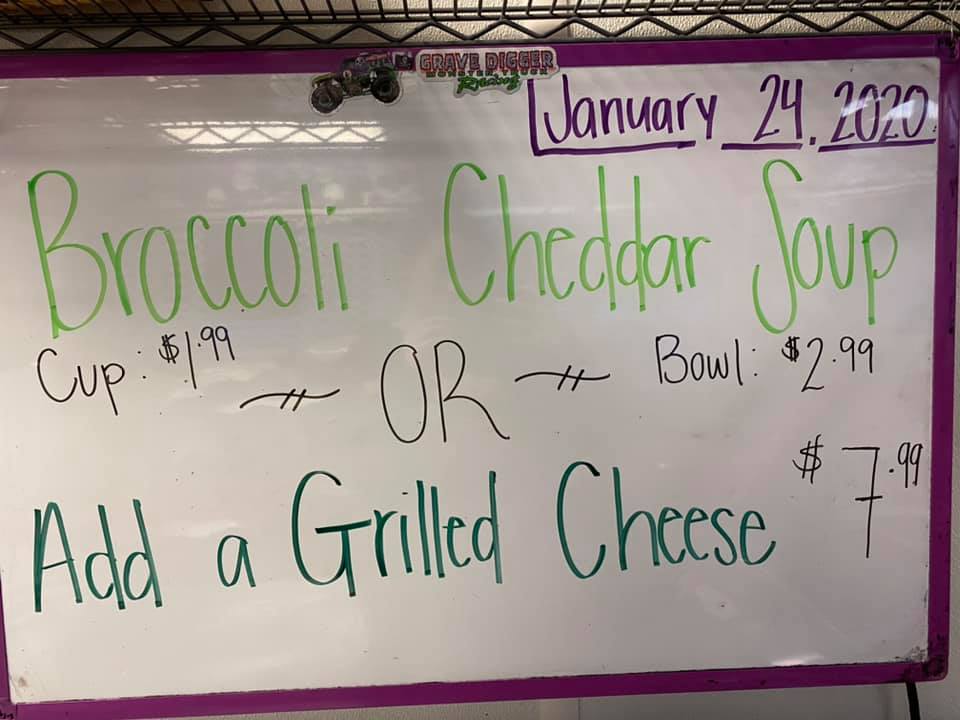 GRAVE DIGGER
MONSTER TRUCK
Racing
January 24, 2020
Broccoli Cheddar Soup
Cup: $1.99 OR Bowl: $2.99
Add a Grilled Cheese $7.99